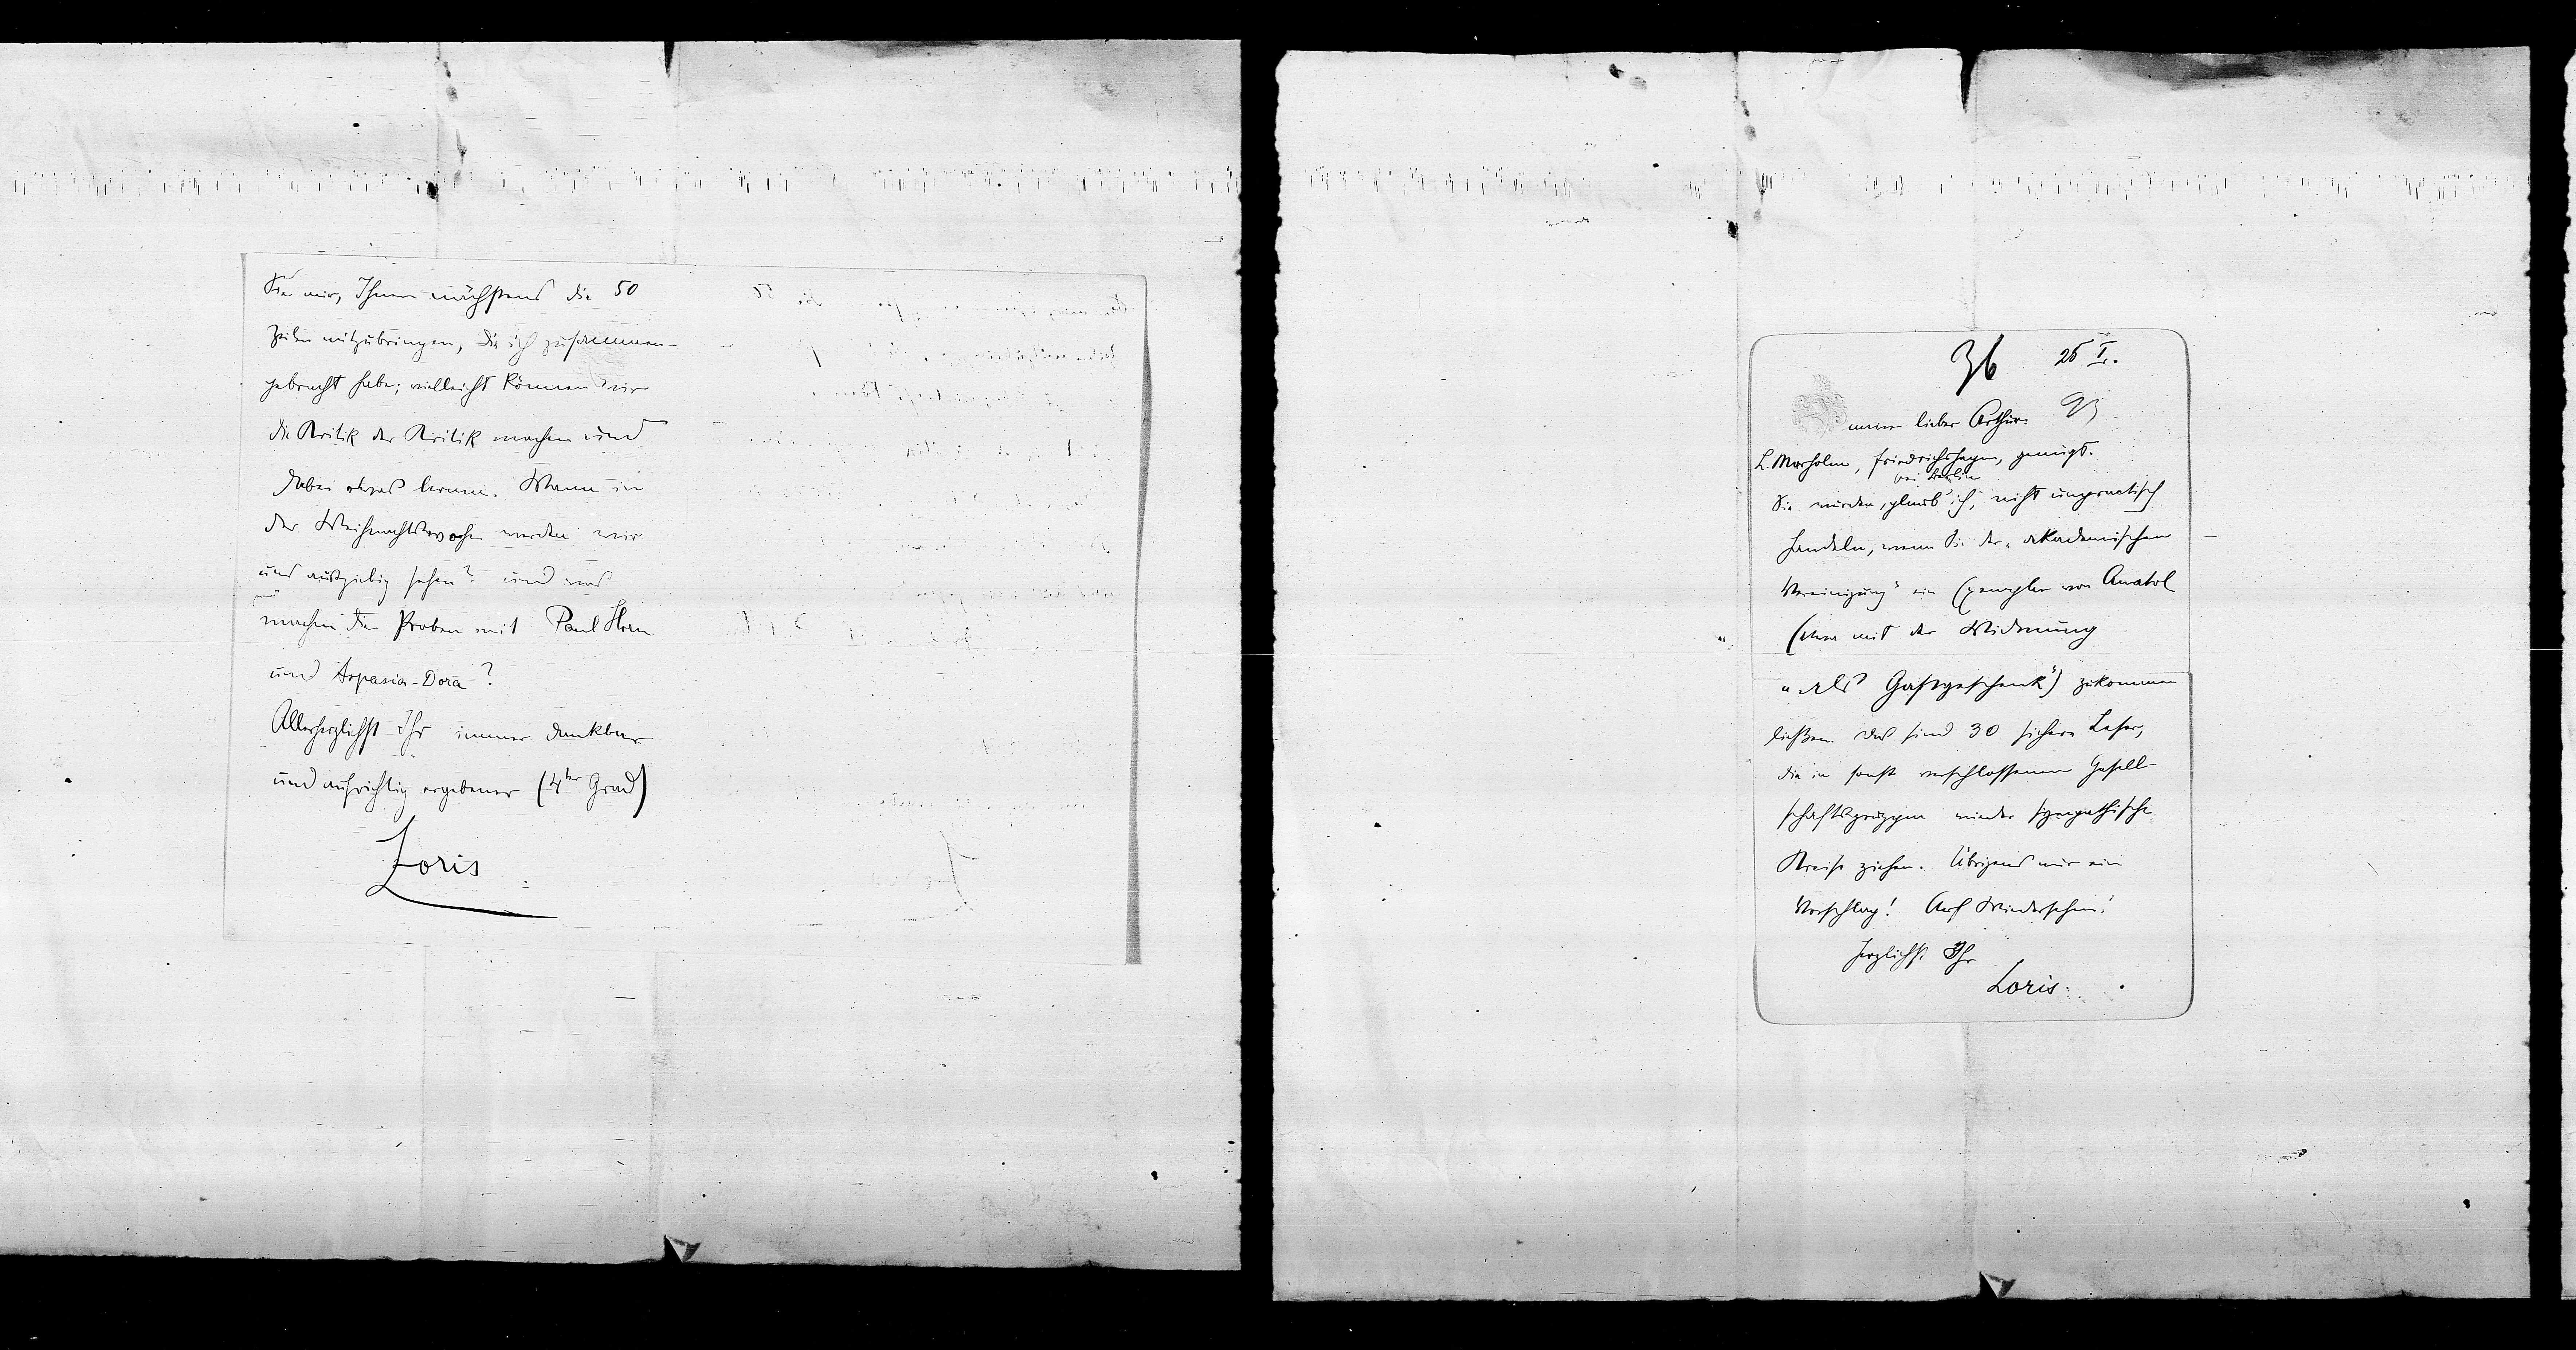 Sie mir, Ihnen nächstens die 50
Zeilen mitzubringen, die ich zusammen-
gebracht habe; vielleicht können wir
die Kritik der Kritik machen und
dabei etwas lernen. Wann in
der Weihnachtswoche werden wir
uns ausgiebig sehen? und was
machen die Proben mit Paul Horn
und Aspasia-Dora?
Allerherzlichst Ihr immer dankbar
und aufrichtig ergebener (4ter Grad)
Loris
36 25 I.
93
mein lieber Arthur.
L. Marholm, Friedrichshagen, genügt.
bei Berlin
Sie würden, glaub' ich, nicht unpractisch
handeln, wenn Sie der „akademischen
Vereinigung" ein Exemplar von Anatol
(etwa mit der Widmung
„als Gastgeschenk") zukommen
ließen. Das sind 30 sichere Leser,
die in sonst verschlossenen Gesell-
schaftsgruppen wieder sympathische
Kreise ziehen. Übrigens nur ein
Vorschlag! Auf Wiedersehen!
herzlichst Ihr
Loris.